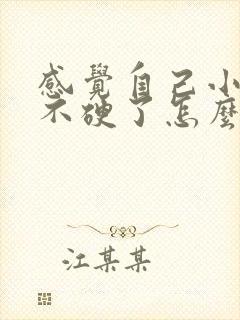 感覺自己小
不硬了怎麼
江某某